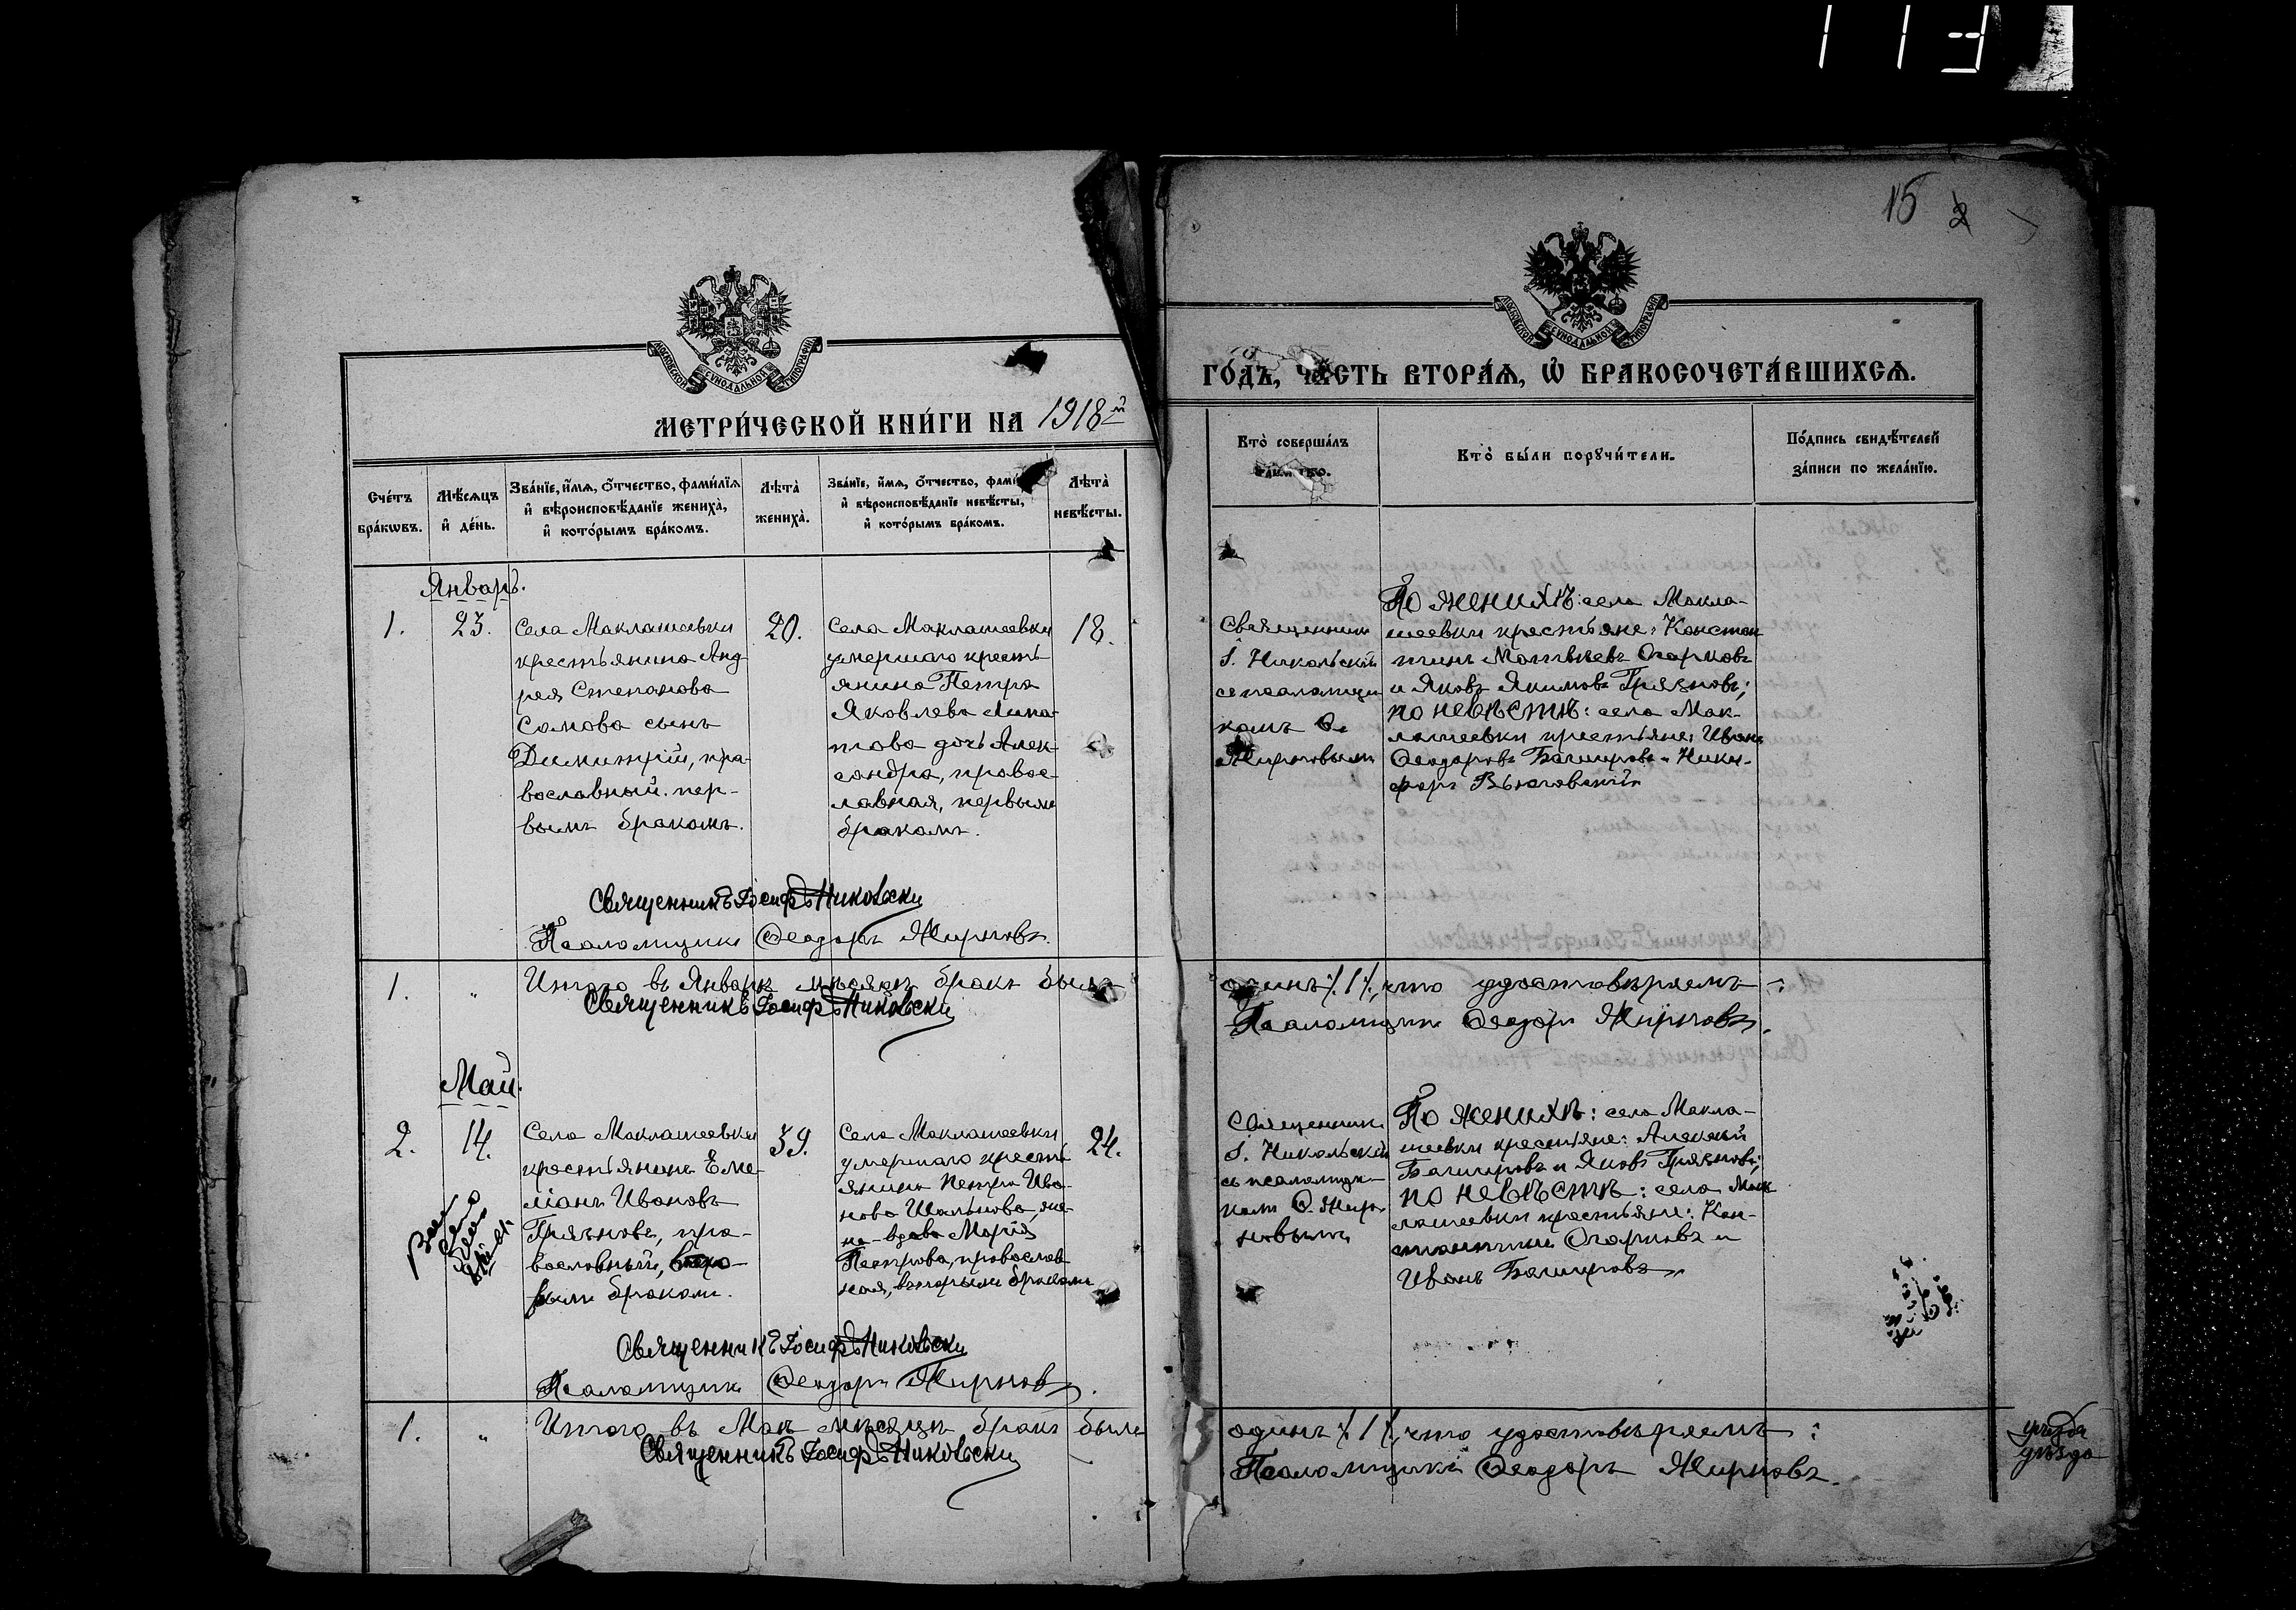 113
15 2
МЕТРИ́ЧЕСКОЙ КНИ́ГИ НА 1918й
ГО́ДЪ, ЧА́СТЬ ВТОРА́Ѧ, Ѡ҆ БРАКОСОЧЕТА́ВШИХСѦ.
МОСКОВСКОЙ СѴНОДАЛЬНОЙ ТИПОГРАФІИ
МОСКОВСКОЙ СѴНОДАЛЬНОЙ ТИПОГРАФІИ
Сче́тъ
бра́кѡвъ.
Мѣ́сѧцъ
и҆ де́нь.
Зва́нїе, и҆́мѧ, ѻ҆́тчество, фами́лїѧ
и҆ вѣроисповѣ́данїе жениха̀,
и҆ кото́рымъ бра́комъ.
Лѣта̀
жениха̀.
Зва́нїе, и҆́мѧ, ѻ҆́тчество,
и҆ вѣроисповѣ́данїе невѣ́сты,
и҆ кото́рымъ бра́комъ.
Лѣта̀
невѣ́сты.
Кто̀ соверша́лъ
Кто̀ бы́ли порꙋчи́тели.
По́дпись свидѣ́телей
за́писи по жела́нїю.
Январь.
1.
23.
Села Маклашеевки
крестьянина Анд
рея Степанова
Самова сынъ
Димитрій, пра-
вославный. пер-
вымъ бракомъ.
20.
Села Маклашеевки
умершаго кресть
янина Петра
Яковлева
дочь Алек
сандра, правос-
лавная, первымъ
бракомъ.
18.
Священникъ
І. Никольскій
съ псаломщи
комъ Ѳ.
Жирновымъ
По женихѣ: села Макла-
шеевки крестьяне: Констан
тинъ Матвѣевъ Огарковъ
и Яковъ Якимовъ Грязновъ;
по невѣстѣ: села Мак-
лашеевки крестьяне: Иванъ
Ѳеодоровъ Башировъ и Ники-
форъ
Священникъ Іосифъ Никольски
Псаломщикъ Ѳеодоръ Жирновъ.
1.
"
Итого въ Январѣ мѣсяцѣ бракъ былъ
одинъ /1/, что удостовѣряемъ:
Священникъ Іосифъ Никольски
Псаломщикъ Ѳеодоръ Жирновъ.
Май.
2.
14.
Села Маклашеевки
крестьянинъ Еме-
ліанъ Ивановъ
Грязновъ, пра-
вославный,
вымъ бракомъ.
39.
Села Маклашеевки
умершаго кресть
янина Петра Ива-
нова же-
на-вдова Марія
Петрова, православ
ная, вторымъ бракомъ
24.
Священникъ
І. Никольскій
съ псаломщи-
комъ Ѳ. Жир-
новымъ
По женихѣ: села Макла-
шеевки крестьяне: Алексѣй
Башировъ и Яковъ Грязновъ;
по невѣстѣ: села Мак
лашеевки крестьяне: Кон-
стантинъ Огарковъ и
Иванъ Башировъ
Священникъ Іосифъ Никольски
Псаломщикъ Ѳеодоръ Жирновъ.
1.
"
Итого въ Маѣ мѣсяцѣ бракъ былъ
одинъ /1/, что удостовѣряемъ:
Священникъ Іосифъ Никольски
Псаломщикъ Ѳеодоръ Жирновъ.
уѣзда